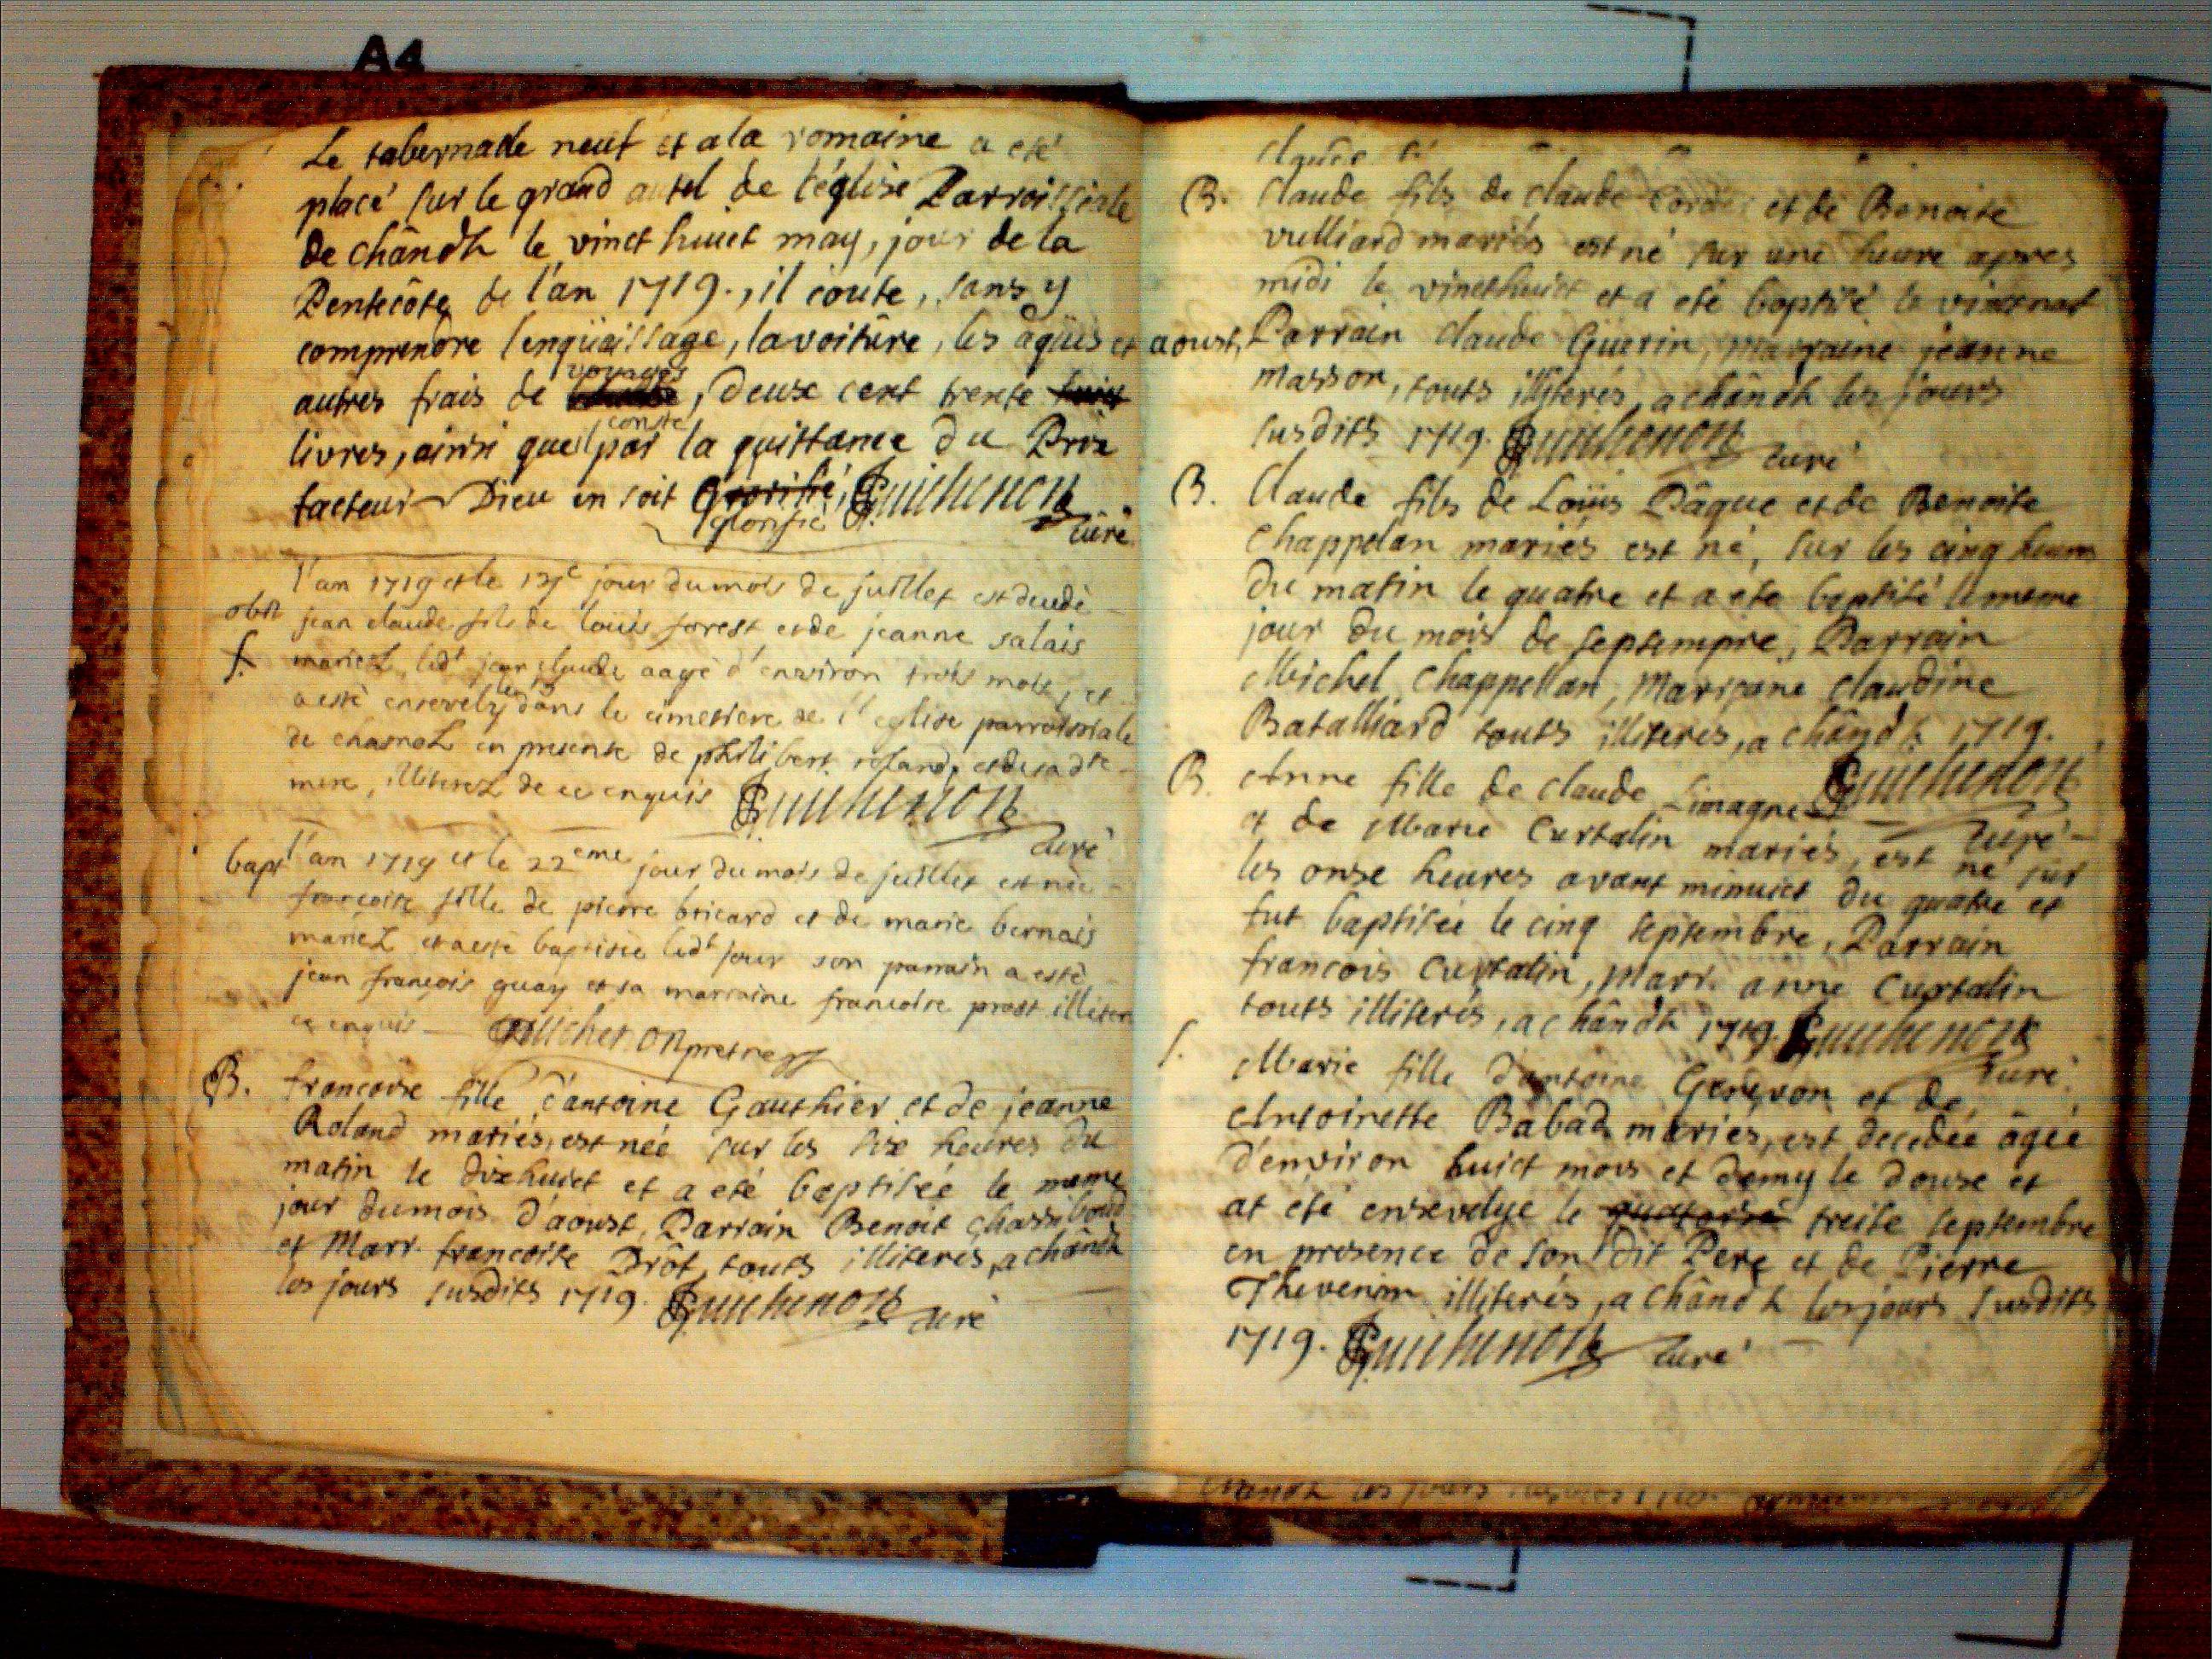 A4
Le tabernacle neuf et a la romaine a eté
placé sur le grand autel de l'église Parroissiale
de chândh le vinct huict may, jour de la
Pentecôte de l'an 1719., il coute, sans y
comprendre l'enqüaissage, la voitüre, les aqüis et
voyages
autres frais de , deux cent trente huict
conste
livres, ainsi que par la quittance du Prix
facteur Dieu en soit Guichenon
glorifié curé
l'an 1719 et le jour du mois de juillet est decedé
obit jean claude fils de louis forest et de jeanne salais
f. mariez, ledt jean claude aagé d'environ trois mois, et
a esté ensevely dans le cimetiere de l'eglise parroissiale
de en presence de philibert roland, et de sa dte
mere, illiterez de ce enquis Guichenon
curé
bapt l'an 1719 et le 22eme jour du mois de juillet est née
françoise fille de pierre bricard et de marie bernais
mariez et a esté baptisée ledt jour son parrain a esté
jean françois guay et sa marraine francoise prost illiter
ce enquis Guichenon pretre
B. francoise fille d'antoine Gauthier et de jeanne
Roland mariés, est née sur les six heures du
matin le dixhuict et a eté baptisée le meme
jour du mois d'aoust, Parrain Benoit
et Marr. francoise Drôt, touts illiteres, a chândh
les jours susdits 1719. Guichenon curé
claude
B. Claude fils de claude et de Benoite
vulliard mariés est né sur une heure apres
midi le vincthuict et a eté baptisé le vinctneuf
aoust, Parrain claude Guerin, marraine jeanne
masson, touts illiterés, a chândh les jours
susdits 1719. Guichenon curé
B. Claude fils de Loüis Pâque et de Benoite
Chappelan mariés est né, sur les cinq heures
du matin le quatre et a eté baptisé le meme
jour du mois de septempre, Parrain
Michel Chappellan, Marraine claudine
Batalliard touts illiteres, a chândh 1719.
Guichenon
B. Anne fille de claude Limagne curé
et de Marie Curtalin mariés, est né sur
les onse heures avant minuict du quatre et
fut baptisée le cinq septembre, Parrain
francois Curtalin, Marr. anne Curtalin
touts illiterés, a chândh 1719. Guichenon
curé
f. Marie fille d'antoine et de
Antoinette Babad mariés, est decedée âgée
d'environ huict mois et demy le douse et
at été ensevelye le quatorse treise septembre
en presence de son dit Pere et de Pierre
Thevenin illiterés, a chândh les jours susdits
1719. Guichenon curé